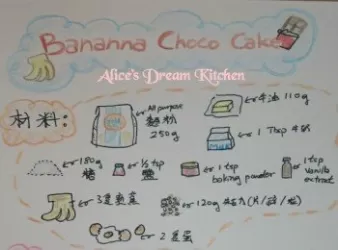 Bananna Choco Cake
Alice's Dream Kitchen
材料:
All purpose
麵粉
250g
牛油 110g
1 Tbsp 牛奶
180g
糖
½ tsp
鹽
1 tsp
baking powder
1 tsp
vanilla
extract
3隻蕉
120g
2隻蛋